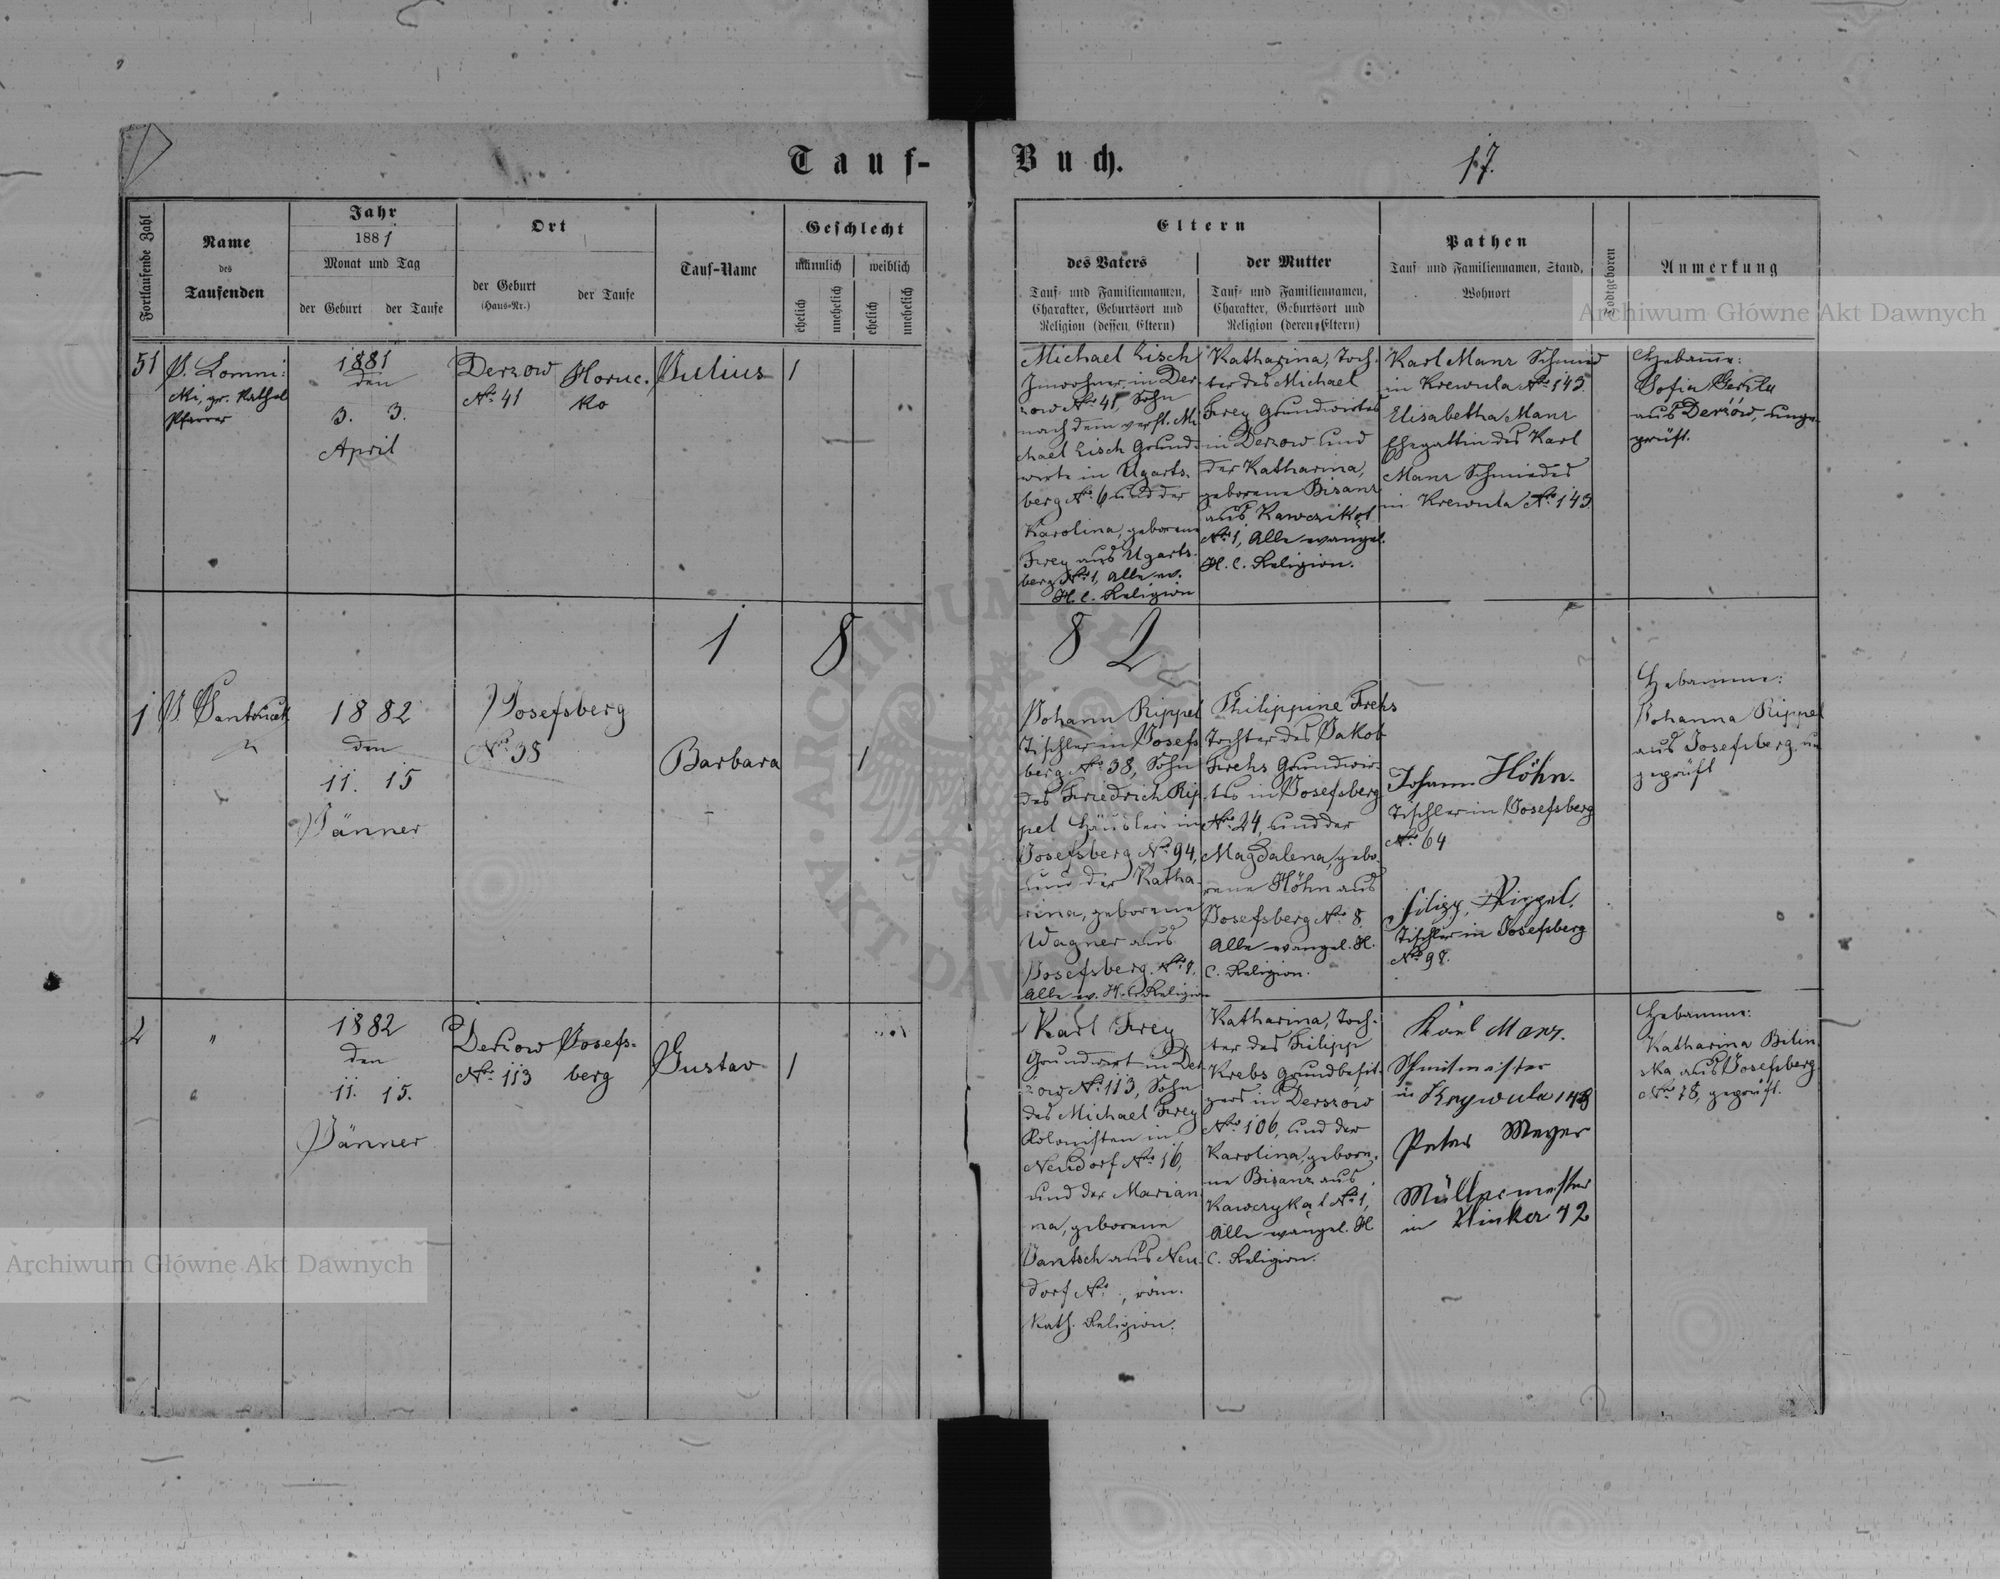 Tauf-
Buch.
17.
Fortlaufende Zahl
Name
des
Taufenden
Jahr
1881
Monat und Tag
der Geburt
der Taufe
Ort
der Geburt
(Haus-Nr.)
der Taufe
Tauf-Name
Geschlecht
männlich
weiblich
ehelich
unehelich
ehelich
unehelich
Eltern
des Vaters
Tauf- und Familiennamen,
Charakter, Geburtsort und
Religion (dessen Eltern)
der Mutter
Tauf- und Familiennamen,
Charakter, Geburtsort und
Religion (deren Eltern)
Pathen
Tauf- und Familiennamen, Stand,
Wohnort
Todtgeboren
Anmerkung
51
Lomni:
cki, gr. Kathol
Pfarrer
1881
den
3. 3.
April
Derzow
No 41
Horuc.
ko
Julius
1
Michael Lisch
Inwohner in Der
zow No 41, Sohn
nach dem verst. Mi
chael Lisch Grund
wirte in Ugarts-
berg No 6 und der
Karolina, geborene
Frey aus Ugarts-
berg No 1, Alle ev.
H. C. Religion
Katharina, Toch-
ter des Michael
Frey Grundwirtes
in Derzow und
der Katharina,
geborene Bisanz
aus Kawczikąt
No 1, Alle evangel.
H. C. Religion.
Karl Manz Schmied
in Krewula No 145
Elisabetha Manz
Ehegattin des Karl
Manz Schmiedes
in Krewula No 145
Hebamme:
Sofia
aus Derżów, unge-
prüft.
1 8 8 2
1
1882
den
11. 15
Jänner
Josefsberg
No 38
Barbara
1
Johann Rippel
Tischler in Josefs
berg No 38, Sohn
des Friedrich Rip
pel Häuslers in
Josefsberg No 94,
und der Katha
rina, geborene
Wagner aus
Josefsberg No
Alle ev. H. C. Religion
Philippine Krehs
Tochter des Jakob
Krehs Grundwir-
tes in Josefsberg
No 24, und der
Magdalena, gebo
rene Höhn aus
Josefsberg No 8
Alle evangel. H.
C. Religion.
Johann Höhn.
Tischler in Josefsberg
No 64
Filipp Rippel.
Tischler in Josefsberg
No 98.
Hebamme:
Johanna Rippel
aus Josefsberg, un
geprüft
2
"
"
1882
den
11. 15.
Jänner
Derzow
No 113
Josefs-
berg
Gustav
1
Karl Frey
Grundwirt in Der
żow No 113, Sohn
des Michael Frey
Kolonisten in
Neudorf No 16,
und der Marian
na, geborene
Jantsch aus Neu
dorf No , röm.
kath. Religion.
Katharina, Toch-
ter des Filipp
Krebs Grundbesit-
zers in Derszów
No 106, und der
Karolina, gebore-
ne Bisanz aus
Kawczykąt No 1,
Alle evangel. H
C. Religion.
Karl Manz.
Schmitmeister
in Krywula 145
Peter Meyer
Müllermeister
in 42
Hebamme:
Katharina Bilin
ska aus Josefsberg
No 78, geprüft.
Archiwum Główne Akt Dawnych
Archiwum Główne Akt Dawnych
ARCHIWUM GŁÓWNE AKT DAWNYCH